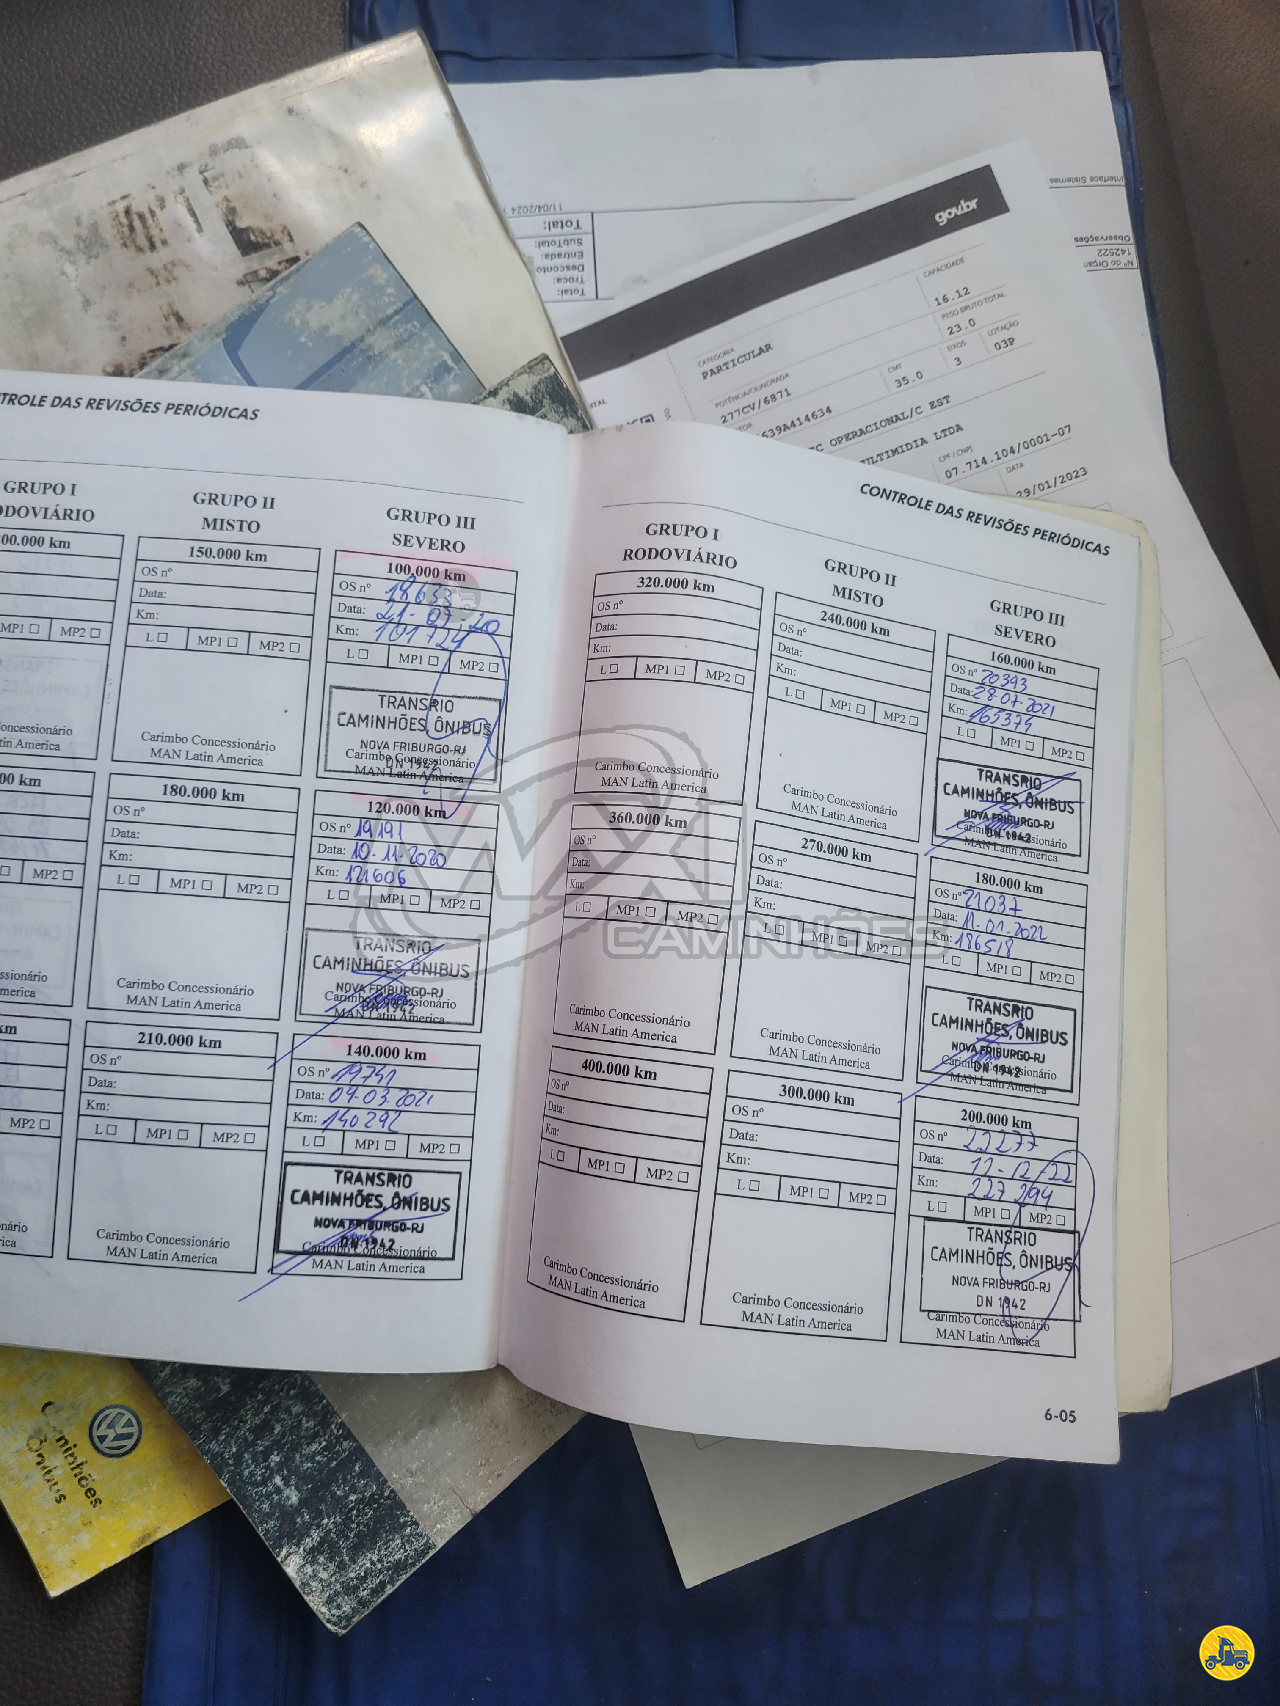 11/04/2024
Total:
SubTotal:
Entrada:
Desconto
Troca:
Total:
Interface Sistemas
Observações
142522
Nº do Orgao
gov.br
CAPACIDADE
16.12
CATEGORIA
PARTICULAR
PESO BRUTO TOTAL
23.0
POTÊNCIA/CILINDRADA
277CV/6871
CMT
35.0
EIXOS
3
LOTAÇÃO
03P
639A414634
OPERACIONAL/C EST
LTDA
CPF / CNPJ
07.714.104/0001-07
DATA
29/01/2023
TROLE DAS REVISÕES PERIÓDICAS
GRUPO I
ODOVIÁRIO
00.000 km
MP1 MP2
ncessionário
tin America
00 km
MP2
ssionário
merica
km
MP2
nário
rica
GRUPO II
MISTO
150.000 km
OS nº
Data:
Km:
L MP1 MP2
Carimbo Concessionário
MAN Latin America
180.000 km
OS nº
Data:
Km:
L MP1 MP2
Carimbo Concessionário
MAN Latin America
210.000 km
OS nº
Data:
Km:
L MP1 MP2
Carimbo Concessionário
MAN Latin America
GRUPO III
SEVERO
100.000 km
OS nº 18633
Data: 21-07-20
Km: 101724
L MP1 MP2
TRANSRIO
CAMINHÕES, ÔNIBUS
NOVA FRIBURGO-RJ
DN 1942
Carimbo Concessionário
MAN Latin America
120.000 km
OS nº 19191
Data: 10-11-2020
Km: 121606
L MP1 MP2
TRANSRIO
CAMINHÕES, ÔNIBUS
NOVA FRIBURGO-RJ
DN 1942
Carimbo Concessionário
MAN Latin America
140.000 km
OS nº 19751
Data: 04-03-2021
Km: 140292
L MP1 MP2
TRANSRIO
CAMINHÕES, ÔNIBUS
NOVA FRIBURGO-RJ
DN 1942
Carimbo Concessionário
MAN Latin America
CONTROLE DAS REVISÕES PERIÓDICAS
GRUPO I
RODOVIÁRIO
320.000 km
OS nº
Data:
Km:
L MP1 MP2
Carimbo Concessionário
MAN Latin America
360.000 km
OS nº
Data:
Km:
L MP1 MP2
Carimbo Concessionário
MAN Latin America
400.000 km
OS nº
Data:
Km:
L MP1 MP2
Carimbo Concessionário
MAN Latin America
GRUPO II
MISTO
240.000 km
OS nº
Data:
Km:
L MP1 MP2
Carimbo Concessionário
MAN Latin America
270.000 km
OS nº
Data:
Km:
L MP1 MP2
Carimbo Concessionário
MAN Latin America
300.000 km
OS nº
Data:
Km:
L MP1 MP2
Carimbo Concessionário
MAN Latin America
GRUPO III
SEVERO
160.000 km
OS nº 20393
Data: 28-07-2021
Km: 165375
L MP1 MP2
TRANSRIO
CAMINHÕES, ÔNIBUS
NOVA FRIBURGO-RJ
DN 1942
Carimbo Concessionário
MAN Latin America
180.000 km
OS nº 21037
Data: 11-01-2022
Km: 186518
L MP1 MP2
TRANSRIO
CAMINHÕES, ÔNIBUS
NOVA FRIBURGO-RJ
DN 1942
Carimbo Concessionário
MAN Latin America
200.000 km
OS nº 22277
Data: 12-12/22
Km: 227294
L MP1 MP2
TRANSRIO
CAMINHÕES, ÔNIBUS
NOVA FRIBURGO-RJ
DN 1942
Carimbo Concessionário
MAN Latin America
6-05
CAMINHÕES
Caminhões
Ônibus